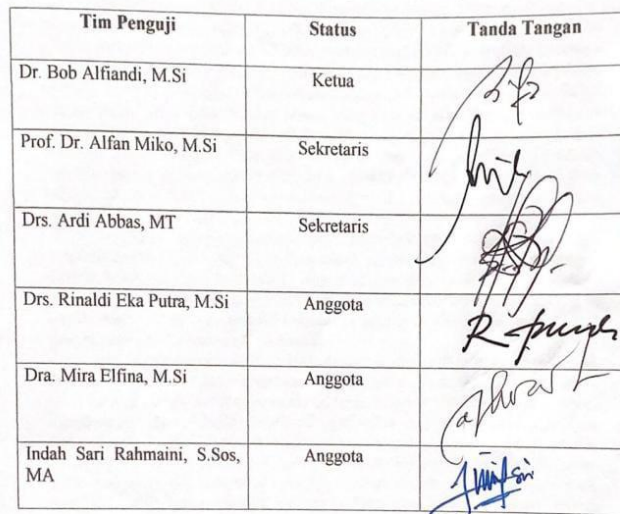 Tim Penguji Status Tanda Tangan
Dr. Bob Alfiandi, M.Si Ketua
Prof. Dr. Alfan Miko, M.Si Sekretaris
Drs. Ardi Abbas, MT Sekretaris
Drs. Rinaldi Eka Putra, M.Si Anggota
Dra. Mira Elfina, M.Si Anggota
Indah Sari Rahmaini, S.Sos, Anggota
MA